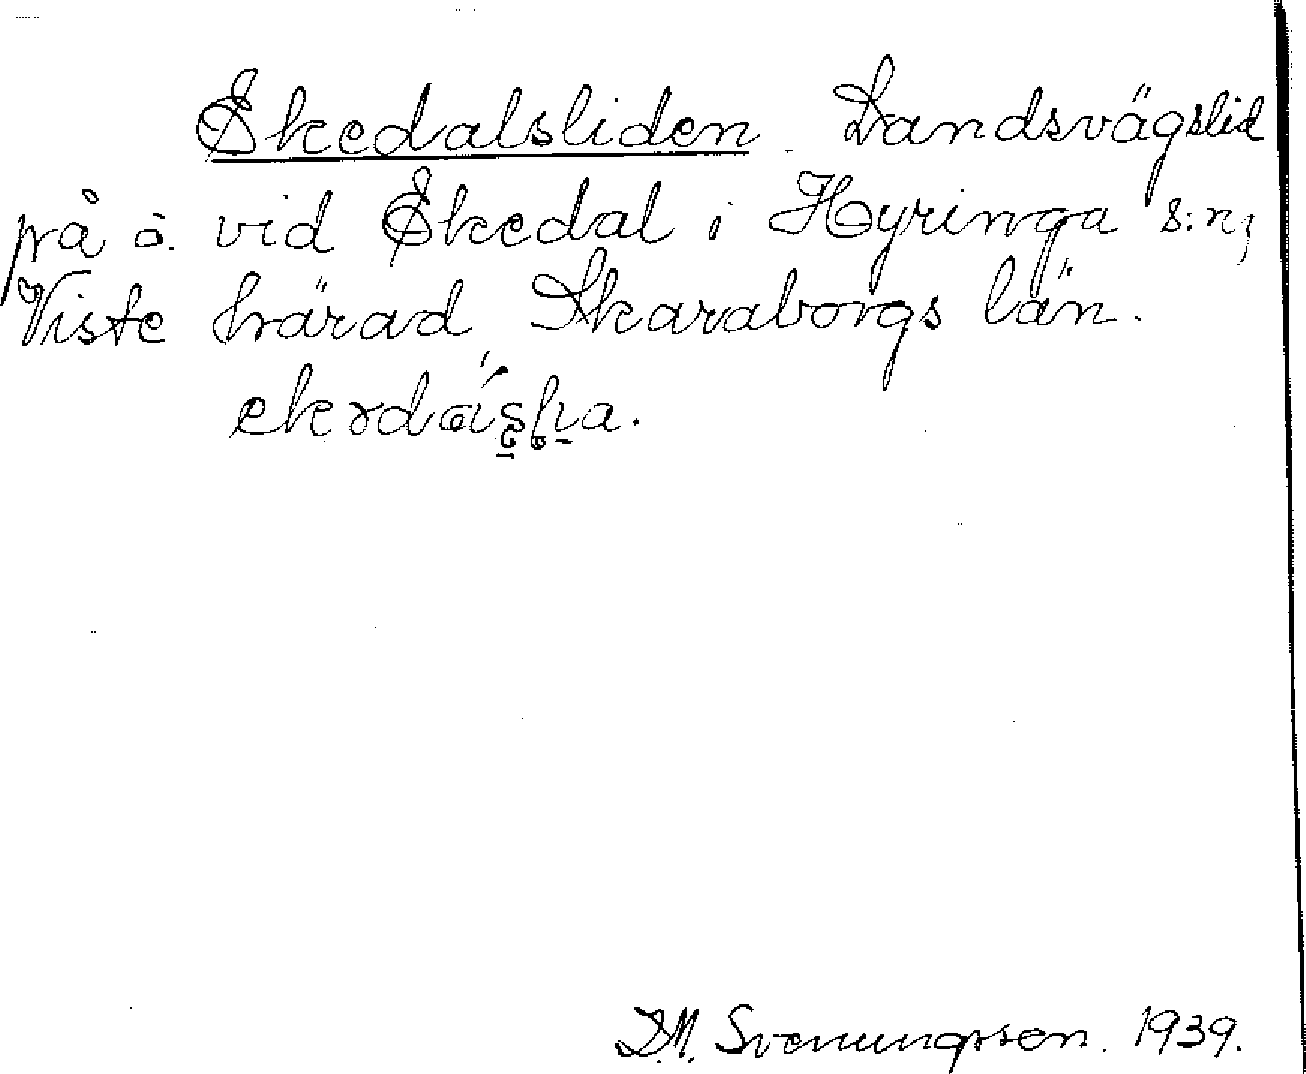 Ekedalsliden. Landsvägslid
på ä. vid Ekedal i Hyringa s:n,
Viste härad Skaraborgs län.
D.M. Svenungsson. 1939.